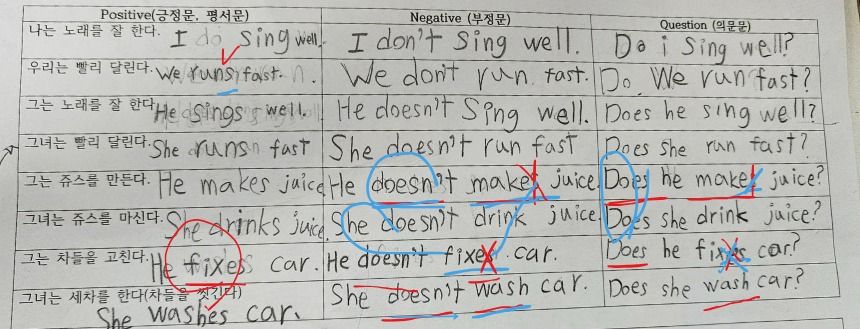 Positive(긍정문, 평서문) Negative (부정문) Question (의문문)
나는 노래를 잘 한다. I do sing well. I don't Sing well. Do i Sing well?
우리는 빨리 달린다. We runs fast. We don't run fast. Do We run fast?
그는 노래를 잘 한다. He sings well. He doesn't Sing well. Does he sing well?
그녀는 빨리 달린다. She runs fast She doesn't run fast Does she run fast?
그는 쥬스를 만든다. He makes juice He doesn't makes juice. Does he makes juice?
그녀는 쥬스를 마신다. She drinks juice She doesn't drink juice. Does she drink juice?
그는 차들을 고친다. He fixes car. He doesn't fixes car. Does he fixes car?
그녀는 세차를 한다(차들을 씻긴다) She washes car. She doesn't wash car. Does she wash car?